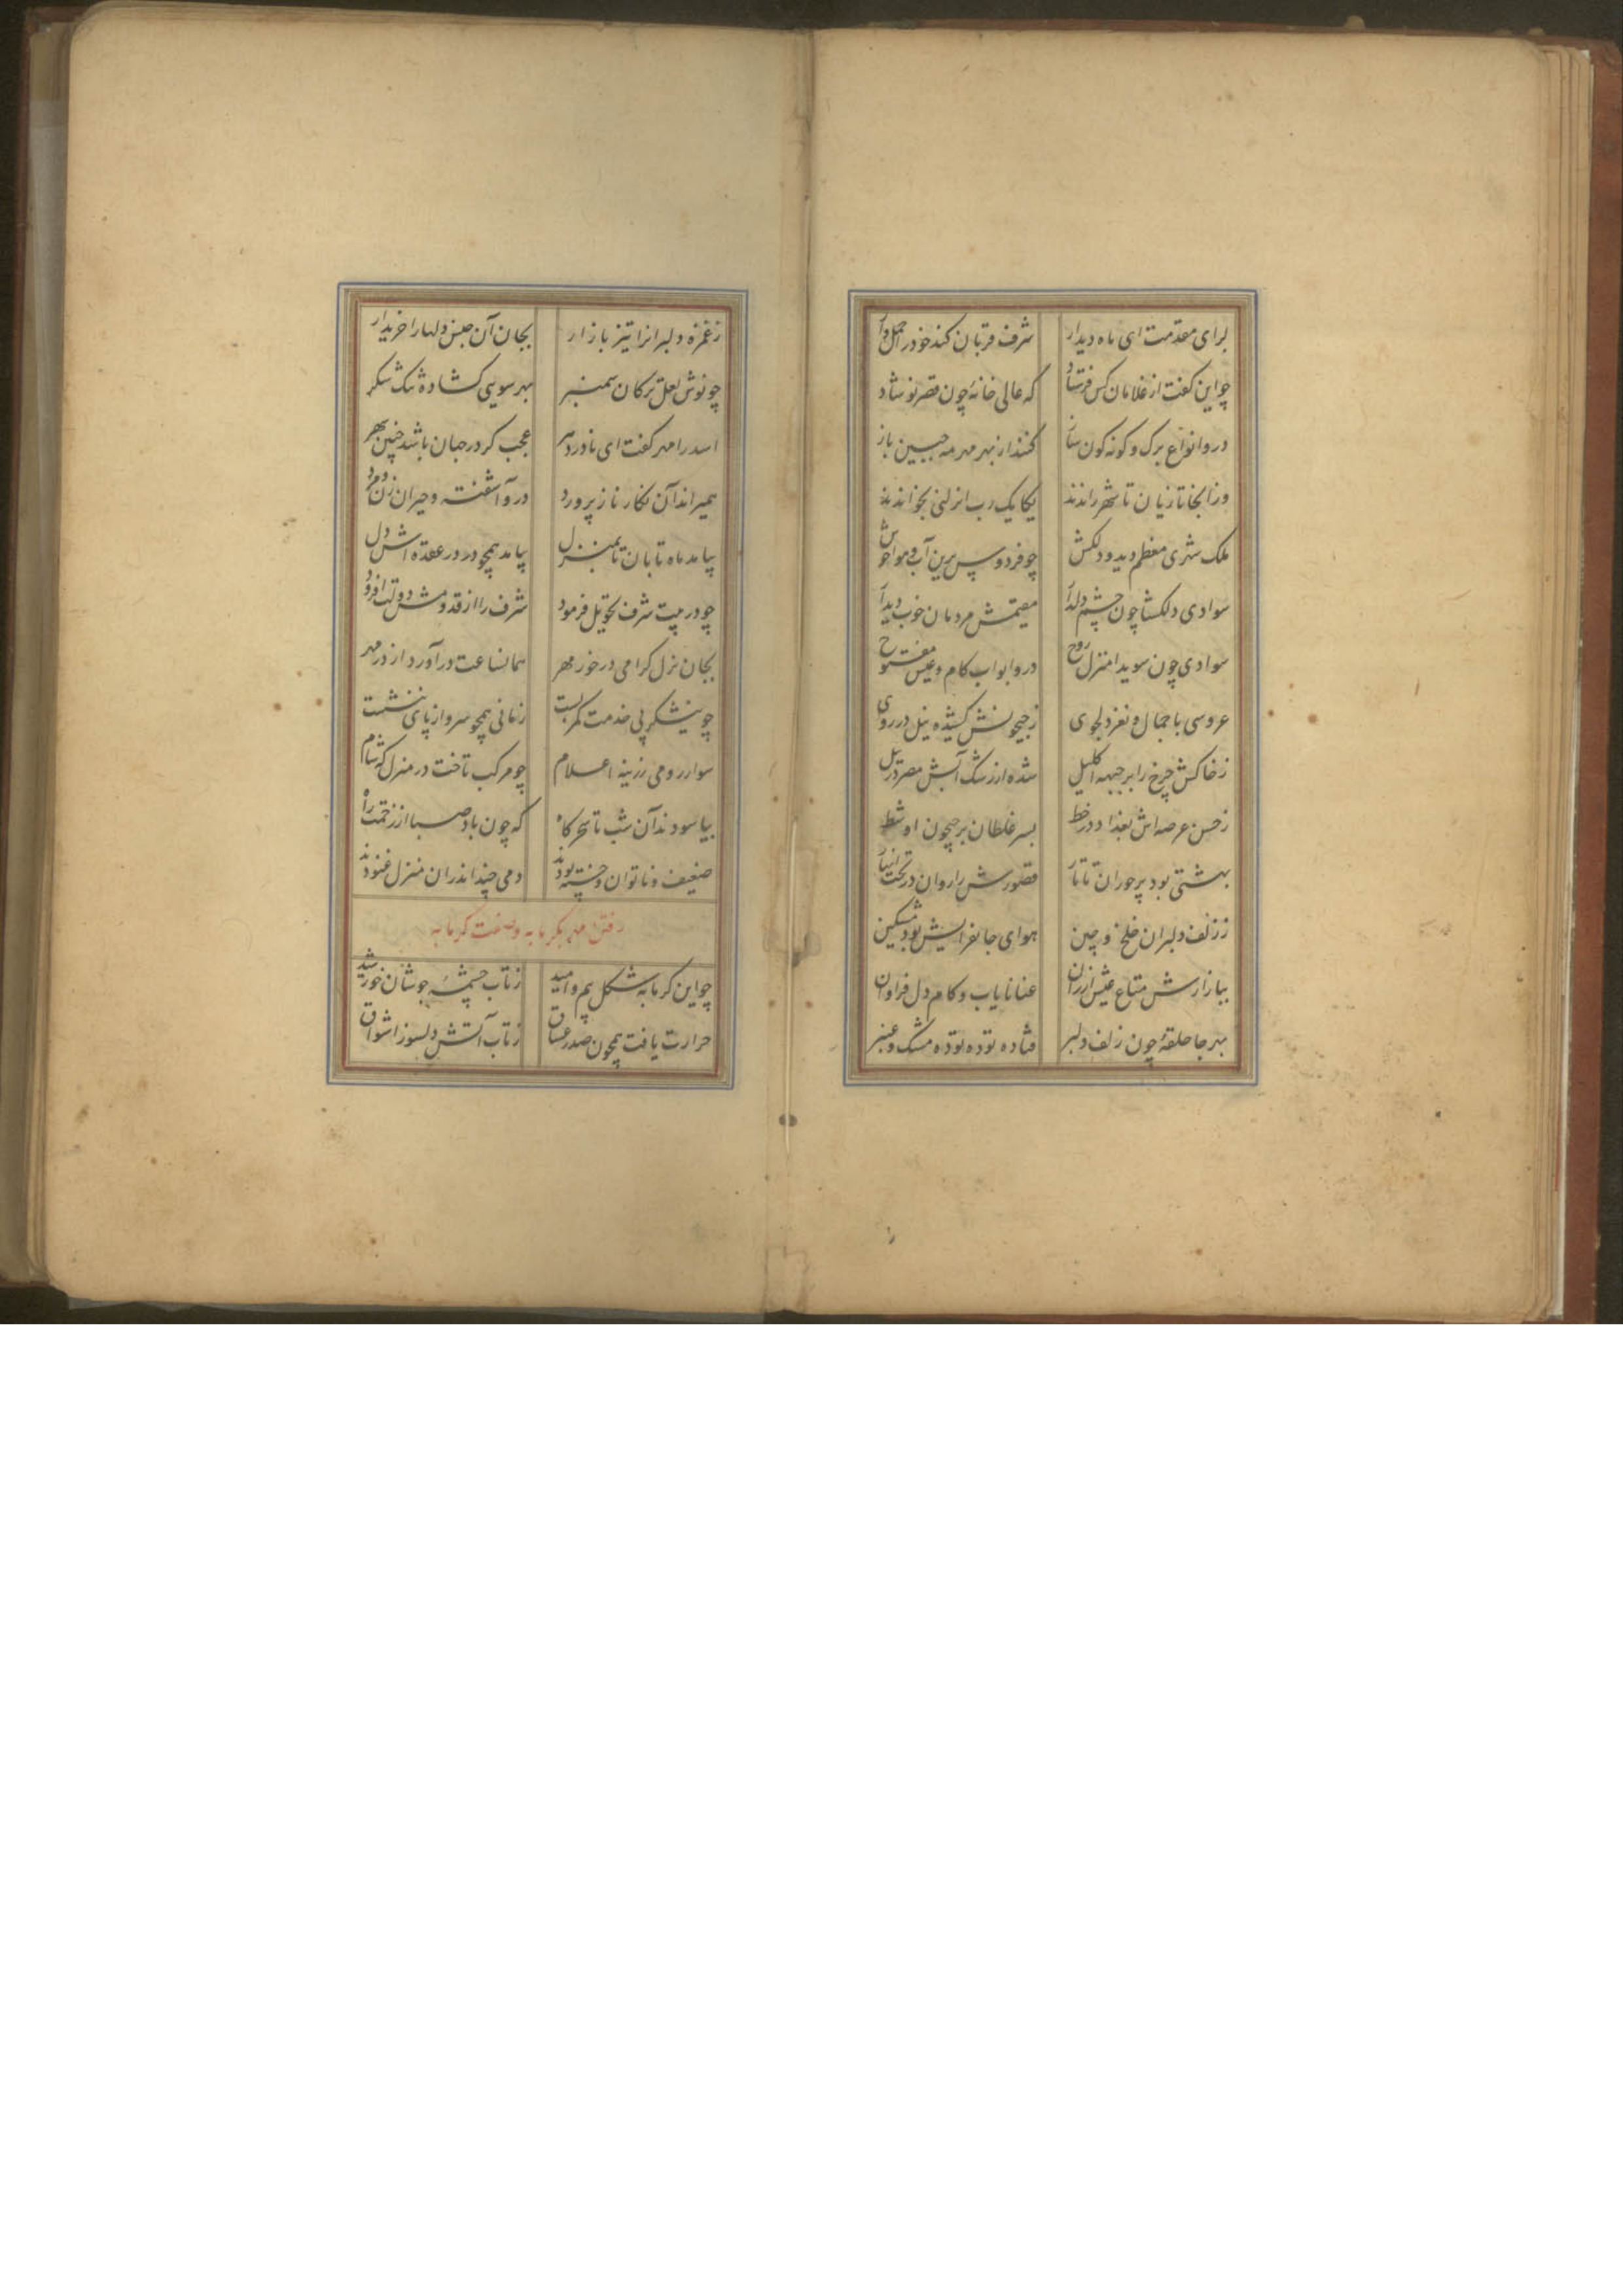 برای مقدمت ای ماه دیدار شرف قربان کند خود را حمل وار
چو این گفت از غلامان کس فرستاد که عالی خانهٔ چون قصر نوشاد
درو انواع برک و کونه کون ساز کنند از بهر مهر مه جبین باز
وز آنجا تازیان تا شهر راندند یکایک
ملک شهری معظم دید و دلکش چو فردوس برین آب و هوا خوش
سوادی دلکشا چون چشم دلدار مقیمش مردمان خوب دیدار
سوادی چون سویدا منزل روح درو ابواب کام و عیش مفتوح
عروسی با جمال و نغز و دلجوی ز جیحونش کشیده نیل در روی
ز خاکش چرخ را بر جبهه اکلیل شده از رشک آبش مصر در نیل
ز حسن عرصه اش بغداد در خط بسر غلطان بر جیحون او شط
بهشتی بود پر حوران تاتار قصورش را روان در تحت انهار
ز زلف دلبران خلخ و چین هوای جانفزایش بود مشکین
ببازارش متاع عیش ارزان عنا نایاب و کام دل فراوان
بهر جا حلقهٔ چون زلف دلبر فتاده توده توده مشک و عنبر
ز غمزه دلبرانرا تیز بازار بجان آن جنس دلها را خریدار
چو نوش لعل ترکان سمنبر بهر سویی کشاده تنک شکر
اسد را مهر کفت ای نادر دهر عجب کر در جهان باشد چنین شهر
همیراند آن نکار ناز پرورد درو آشفته و حیران زن و مرد
بیامد ماه تابان تا بمنزل بیامد همچو در در عقده اش دل
چو در بیت شرف تحویل فرمود شرف را از قدومش دولت افزود
بجان نزل کرامی در خور مهر همانساعت در آورد از در مهر
چو نیشکر پی خدمت کمر بست زمانی همچو سرو از پای ننشست
سوار رومی زرینه اعلام چو مرکب تاخت در منزل که شام
بیاسودند آن شب تا سحرکاه که چون باد صبا از زحمت راه
ضعیف و ناتوان و خسته بودند دمی چند اندران منزل غنودند
رفتن مهر بکرمابه و صفت کرمابه
چو این کرمابه شکل بیم و امید ز تاب چشمهٔ جوشان خورشید
حرارت یافت همچون صدر عشاق ز تاب آتش دلسوز اشواق